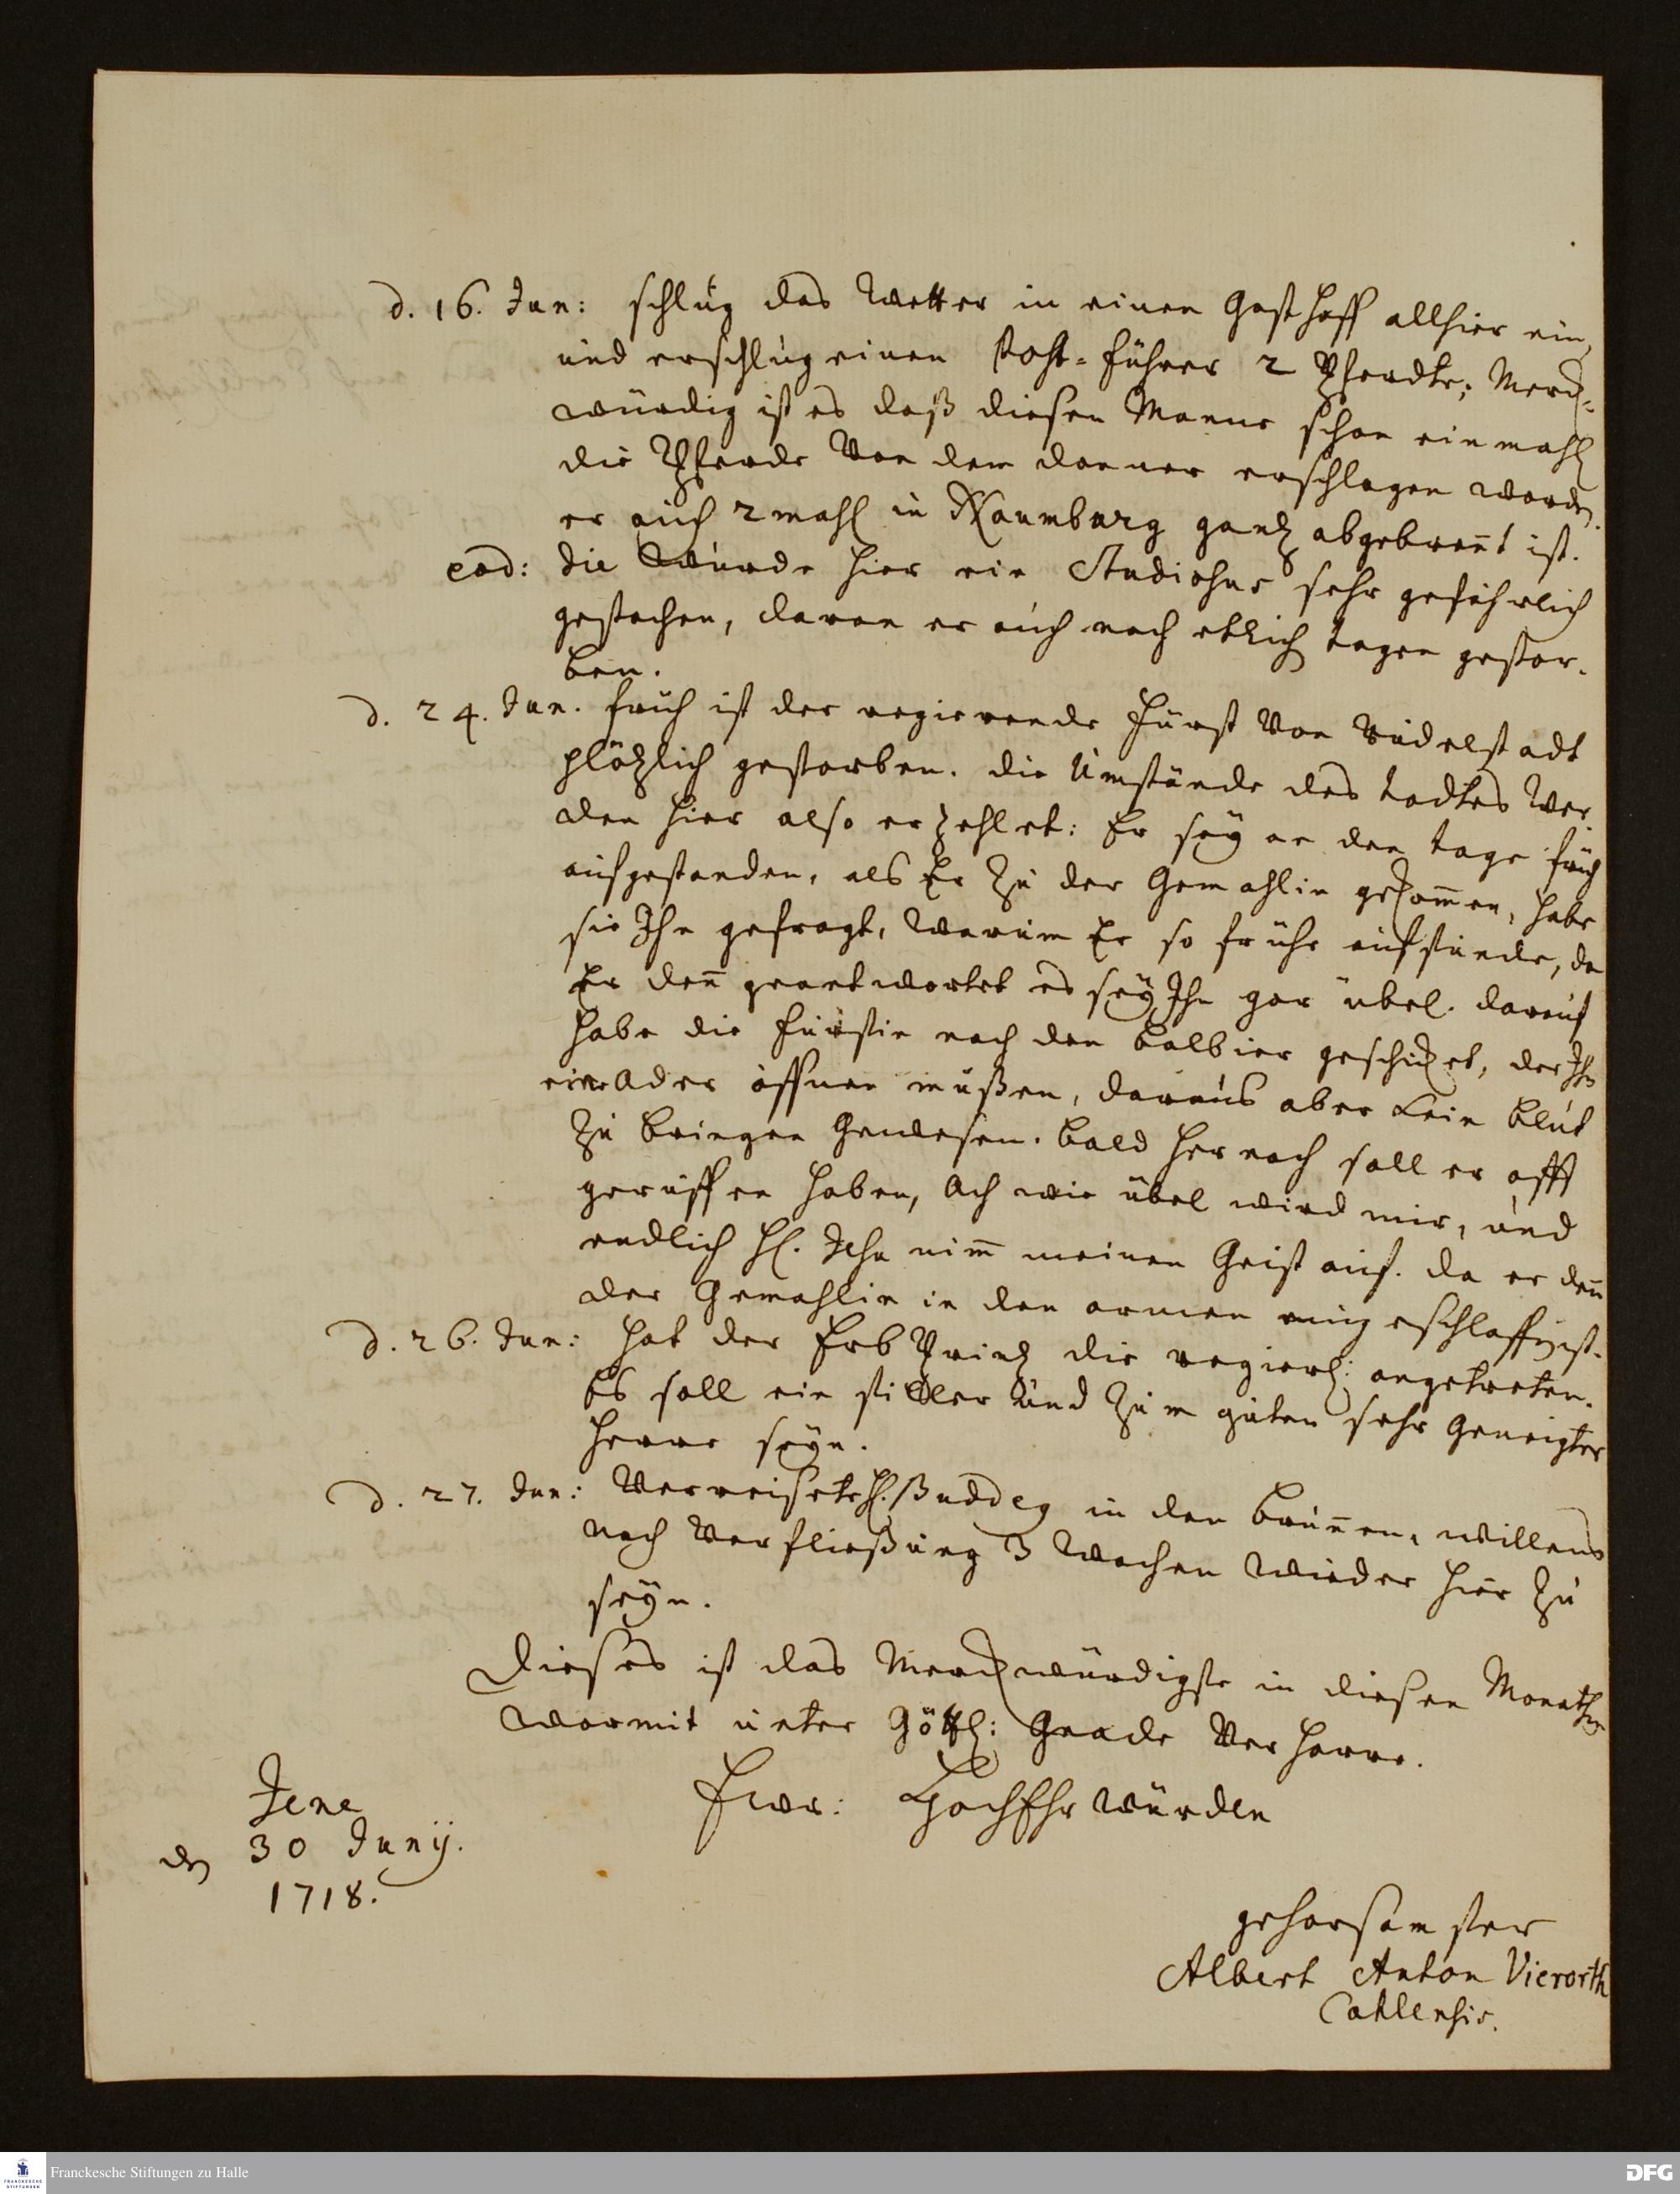 d. 16. Jun: schlug das Wetter in einen Gasthoff allhier ein,
und erschlug einen Post-führer 2 Pferdte; Merck-
würdig ist es daß diesen Manne schon ein mahl
die Pferde Von dem donner erschlagen worden.
er auch 2 mahl in Naumburg gantz abgebrañt ist.
eod: die wurde hier ein Studiosus sehr gefährlich
gestochen, davon er auch nach etlich tagen gestor-
ben.
d. 24. Jun. früh ist der regierende Fürst Von Rudelstadt
plötzlich gestorben. die Umstände des todtes Wer-
den hier also erzehlet: Er sey an den tage früh
aufgestanden, als Er zu der Gemahlin gekom̃en, habe
sie Ihn gefragt, Warum Er so frühe aufstünde, da
Er deñ geantwortet es sey Ihn gar übel. darauf
habe die Fürstin nach den balbier geschicket, der Ihm
eine Ader öffnen müßen, daraus aber kein blut
zu bringen Gewesen. bald hernach soll er offt
geruffen haben, Ach wie übel wird mir, und
endlich H. Jesu nim̃ meinen Geist auf. da er deñ
der Gemahlin in den armen eingeschlaffen ist.
d. 26. Jun: hat der Erb Printz die regier: angetreten.
Es soll ein stiller und zum guten sehr Geneigter
Herre seyn.
d. 27. Jun: Verreisete H. Buddeg in den bruñen, willens
nach Verfließung 3 Wochen wieder hier zu
seyn.
Dieses ist das Merckwürdigste in diesen Monathe
Wormit unter Göttl: Gnade Verharre.
Ewr: HochEhrwürden
Jena
den 30 Junij.
1718.
gehorsamster
Albert Anton Vierorth
Cahlensis.
Franckesche Stiftungen zu Halle
FRANCKESCHE STIFTUNGEN
DFG